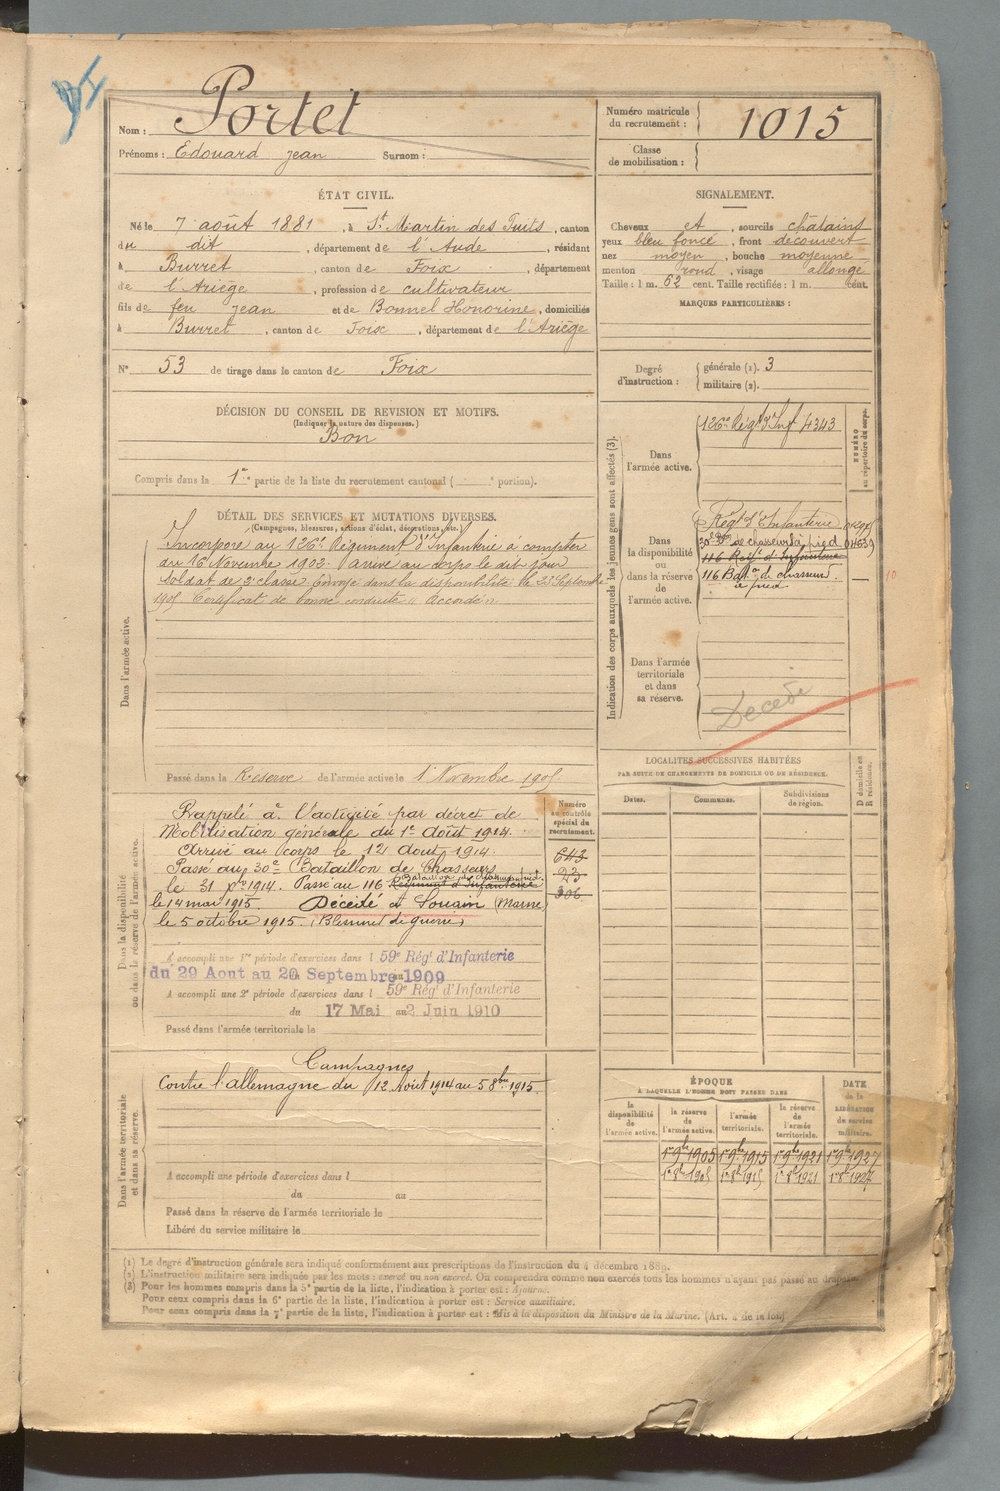 Nom : Portet
Prénoms : Edouard Jean Surnom :
Numéro matricule du recrutement : 1015
Classe de mobilisation :
ÉTAT CIVIL.
Né le 7 août 1881, à St Martin des Puits, canton
du dit, département de l'Aude, résidant
à Burret, canton de Foix, département
de l'Ariège, profession de cultivateur
fils de feu Jean et de Bonnel Honorine, domiciliés
à Burret, canton de Foix, département de l'Ariège
N° 53 de tirage dans le canton de Foix
SIGNALEMENT.
Cheveux et, sourcils châtains
yeux bleu foncé, front découvert
nez moyen, bouche moyenne
menton rond, visage allongé
Taille : 1 m. 62 cent. Taille rectifiée : 1 m. cent.
MARQUES PARTICULIÈRES :
Degré d'instruction : générale (1). 3
militaire (2).
DÉCISION DU CONSEIL DE REVISION ET MOTIFS.
(Indiquer la nature des dispenses.)
Bon
Compris dans la 1re partie de la liste du recrutement cantonal ( e portion).
DÉTAIL DES SERVICES ET MUTATIONS DIVERSES.
(Campagnes, blessures, actions d'éclat, décorations, etc.
Dans l'armée active.
Incorporé au 126e Régiment d'Infanterie à compter
du 16 Novembre 1902. Arrivé au corps le dit jour
soldat de 2e classe. Envoyé dans la disponibilité le 23 Septembre
1905 Certificat de bonne conduite "Accordé".
Passé dans la Réserve de l'armée active le 1 Novembre 1905
Indication des corps auxquels les jeunes gens sont affectés (3).
NUMÉRO au répertoire du corps.
Dans l'armée active.
126e Régt d'Inf 4343
Dans la disponibilité ou dans la réserve de l'armée active.
Régt d'Infanterie
30e Bon de chasseurs à pied
116 Régt d'Infanterie
116 Batn de chasseurs
à pied
10
Dans l'armée territoriale et dans sa réserve.
Décédé
LOCALITÉS SUCCESSIVES HABITÉES
PAR SUITE DE CHANGEMENTS DE DOMICILE OU DE RÉSIDENCE.
D domicile ou R résidence.
Dates. Communes. Subdivisions de région.
Dans la disponibilité ou dans la réserve de l'armée active.
Numéro au contrôle spécial de recrutement.
Rappelé à l'activité par décret de
Mobilisation générale du 1e Août 1914.
Arrivé au corps le 12 Aout 1914.
Passé au 30e Bataillon de Chasseurs
le 31 Xbre 1914. Passé au 116 Régiment d'Infanterie
Bataillon de chasseurs à pied
le 14 mai 1915. Décédé à Souain (Marne)
le 5 octobre 1915. (Blessures de guerre)
643
23
306
A accompli une 1re période d'exercices dans l 59e Régt d'Infanterie
du 29 Aout au 20 Septembre 1909
A accompli une 2e période d'exercices dans l 59e Régt d'Infanterie
du 17 Mai au 2 Juin 1910
Passé dans l'armée territoriale le
Dans l'armée territoriale et dans sa réserve.
Campagnes
Contre l'allemagne du 12 Août 1914 au 5 8bre 1915.
A accompli une période d'exercices dans l
du au
Passé dans la réserve de l'armée territoriale le
Libéré du service militaire le
ÉPOQUE
À LAQUELLE L'HOMME DOIT PASSER DANS
DATE de la LIBÉRATION du service militaire.
la disponibilité de l'armée active.
la réserve de l'armée active.
l'armée territoriale.
la réserve de l'armée territoriale.
1er 9bre 1905 1er 9bre 1915 1er 9bre 1921 1er 9bre 1927
1er 8bre 1905 1er 8bre 1915 1er 8bre 1921 1er 8bre 1927
(1) Le degré d'instruction générale sera indiqué conformément aux prescriptions de l'instruction du 4 décembre 1889.
(2) L'instruction militaire sera indiquée par les mots : exercé ou non exercé. On comprendra comme non exercés tous les hommes n'ayant pas passé au drapeau.
(3) Pour les hommes compris dans la 5e partie de la liste, l'indication à porter est : Ajourné.
Pour ceux compris dans la 6e partie de la liste, l'indication à porter est : Service auxiliaire.
Pour ceux compris dans la 7e partie de la liste, l'indication à porter est : Mis à la disposition du Ministre de la Marine. (Art. 4 de la loi)